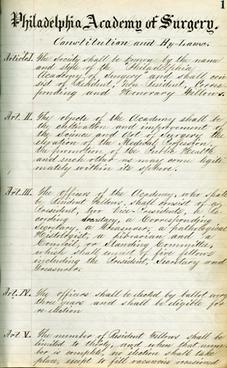 1
Philadelphia Academy of Surgery.
Constitution and By-Laws.
Article I. The Society shall be known by the name
and style of the "Philadelphia
Academy of Surgery and shall con
sist of Resident, Non-Resident, Corres
ponding and Honorary Fellows.
Art. II. The objects of the Academy shall be
the cultivation and improvement of
the Science and Art of Surgery, the
elevation of the Medical Profession,
the promotion of the Public Health
and such other as may come legiti
mately within its sphere.
Art. III. The officers of the Academy, who shall
be Resident Fellows, shall consist of a
President, two Vice-Presidents, a Re
cording Secretary, a Corresponding
Secretary, a Treasurer, a pathological
Histologist, a Historian and a
Council, or Standing Committee,
which shall consist of five fellows
including the President, Secretary and
Treasurer.
Art. IV. The officers shall be elected by ballot every
three years and shall be eligible for
re-election
Art V. The number of Resident Fellows shall be
limited to thirty, and when that num
ber is complete, no election shall take
place, except to fill vacancies